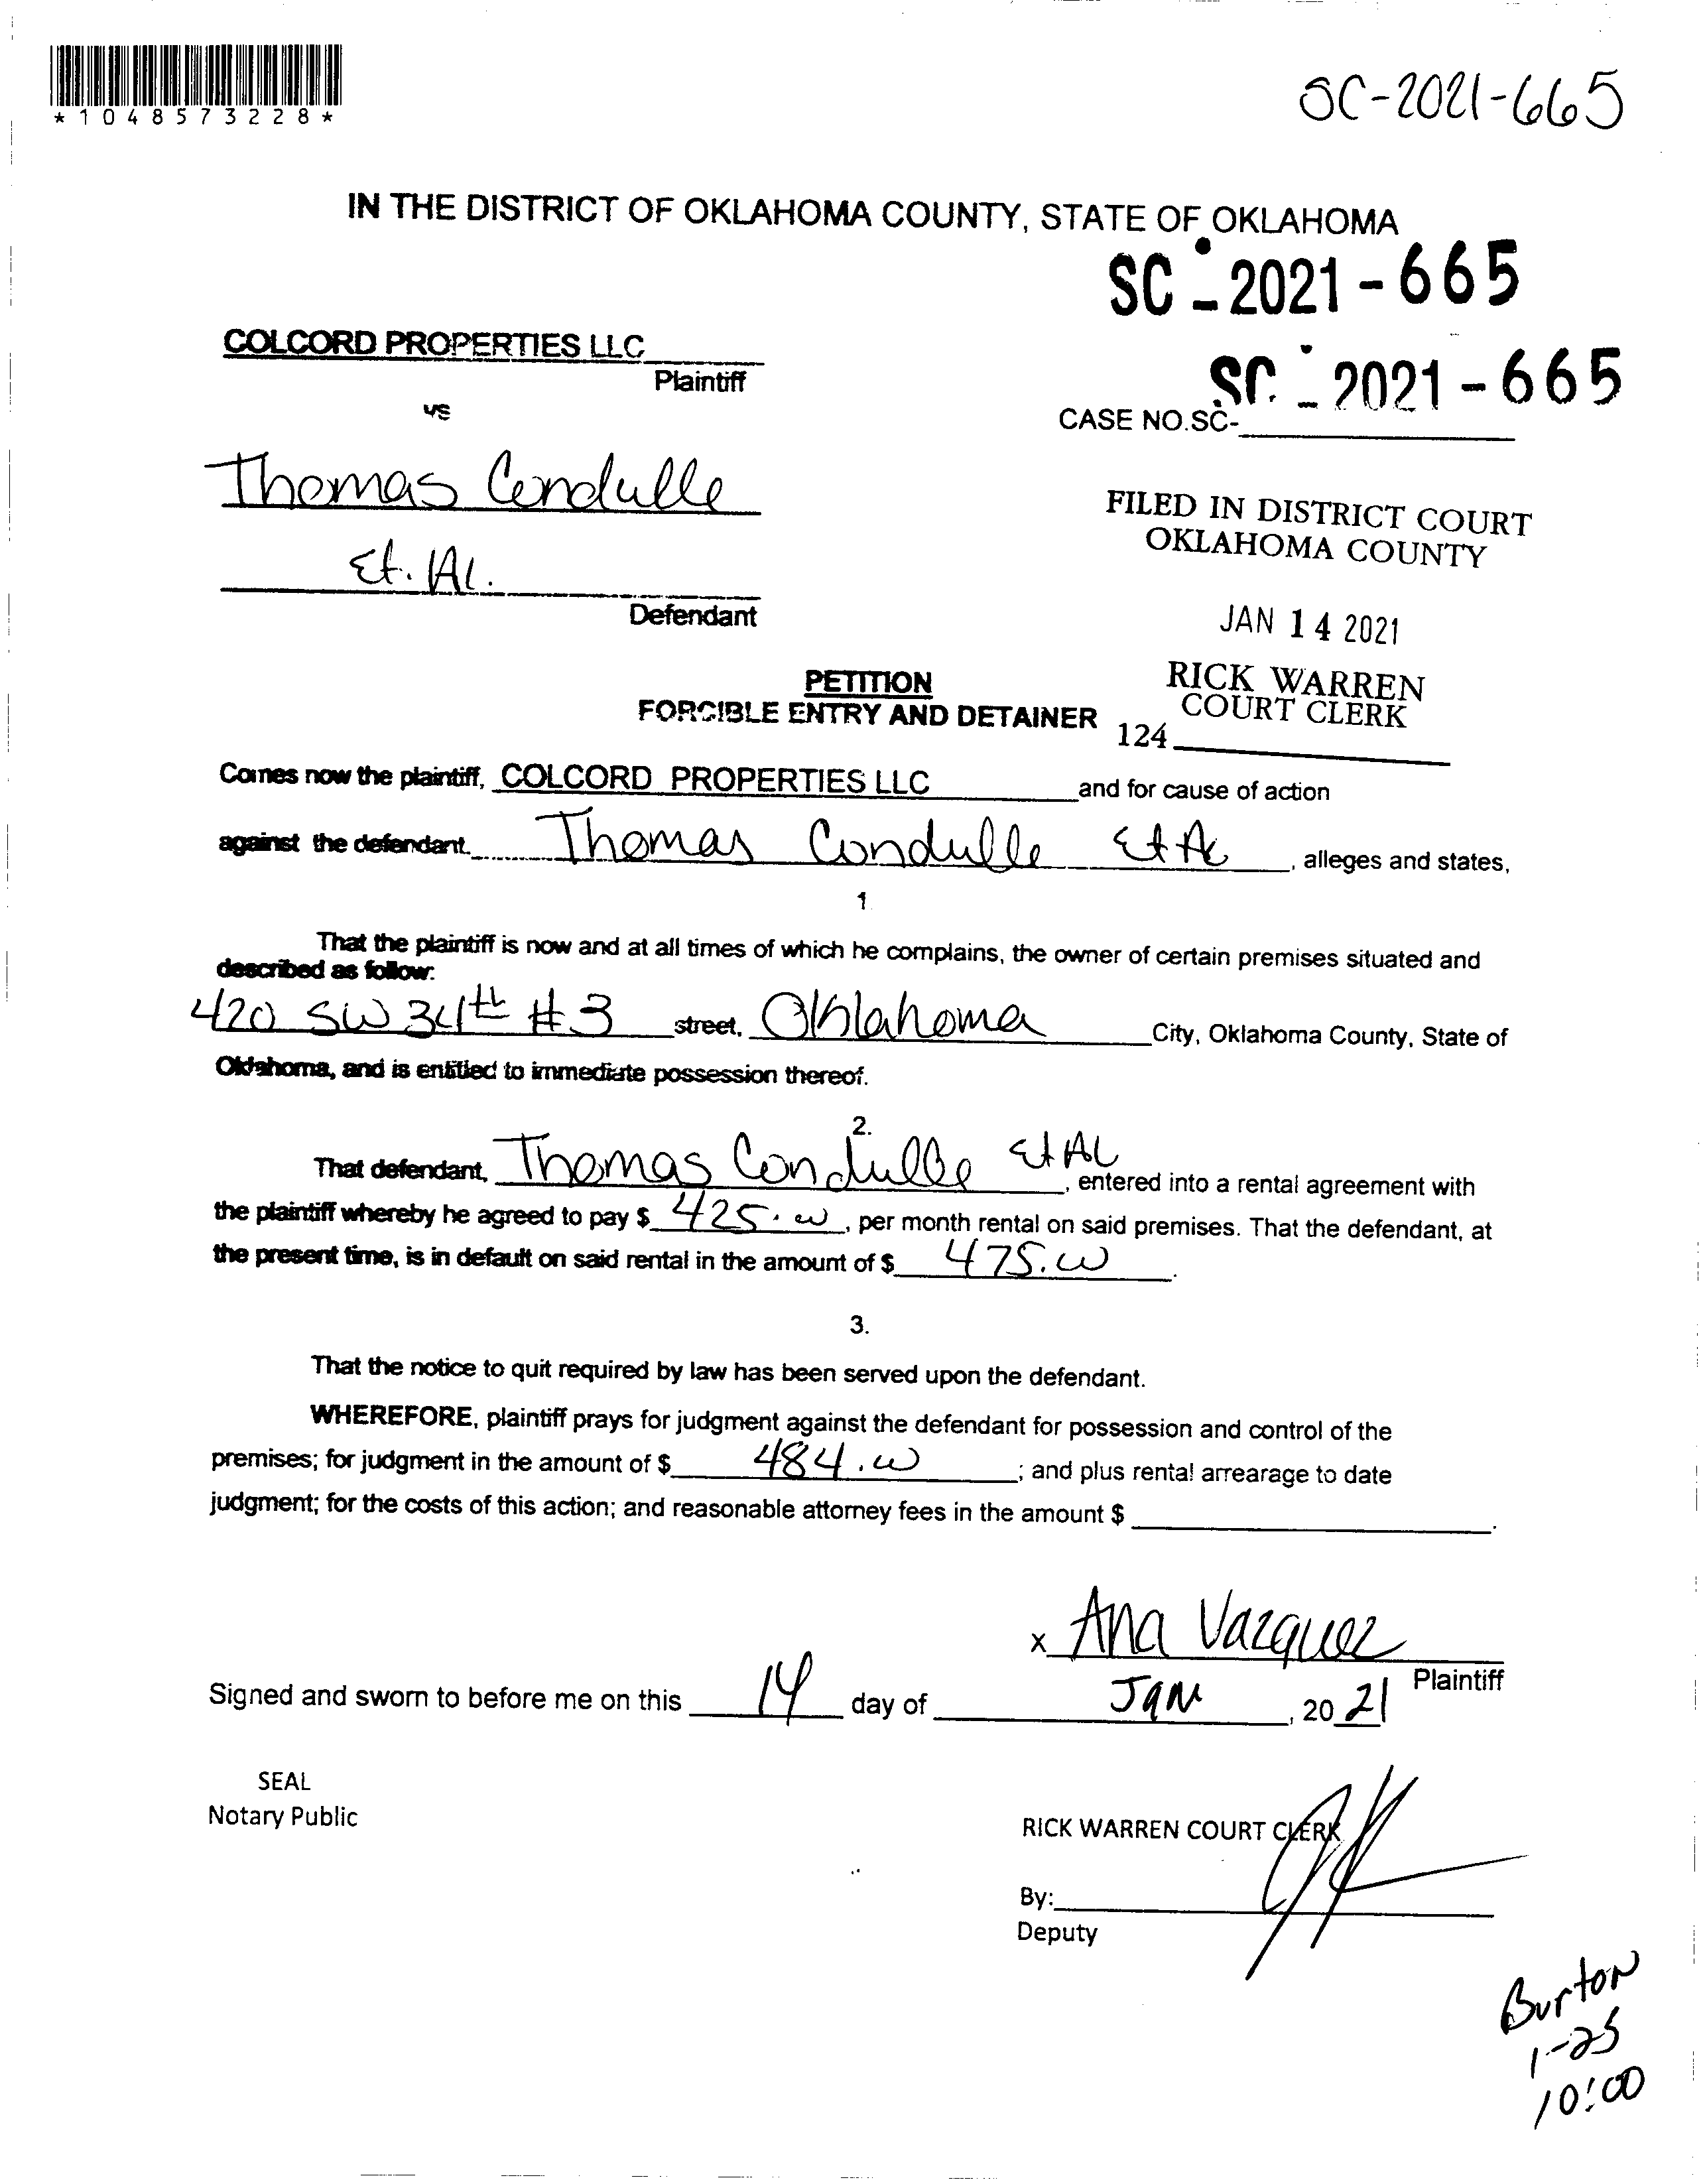 *1048573228*
SC-2021-665
IN THE DISTRICT OF OKLAHOMA COUNTY, STATE OF OKLAHOMA
SC - 2021 - 665
COLCORD PROPERTIES LLC
Plaintiff
SC - 2021 - 665
vs
CASE NO.SC-
Thomas Condulle
Et. Al.
Defendant
FILED IN DISTRICT COURT
OKLAHOMA COUNTY
JAN 14 2021
RICK WARREN
COURT CLERK
124
PETITION
FORCIBLE ENTRY AND DETAINER
Comes now the plaintiff, COLCORD PROPERTIES LLC and for cause of action
against the defendant. Thomas Condulle Et Al, alleges and states,
1
That the plaintiff is now and at all times of which he complains, the owner of certain premises situated and
described as follow:
420 SW 34th #3 street, Oklahoma City, Oklahoma County, State of
Oklahoma, and is entitled to immediate possession thereof.
2.
That defendant, Thomas Condulle Et Al, entered into a rental agreement with
the plaintiff whereby he agreed to pay $ 425.00, per month rental on said premises. That the defendant, at
the present time, is in default on said rental in the amount of $ 475.00.
3.
That the notice to quit required by law has been served upon the defendant.
WHEREFORE, plaintiff prays for judgment against the defendant for possession and control of the
premises; for judgment in the amount of $ 484.00; and plus rental arrearage to date
judgment; for the costs of this action; and reasonable attorney fees in the amount $ .
x Ana Vazquez
Plaintiff
Signed and sworn to before me on this 14 day of Jan, 2021
SEAL
Notary Public
RICK WARREN COURT CLERK
By:
Deputy
Burton
1-25
10:00